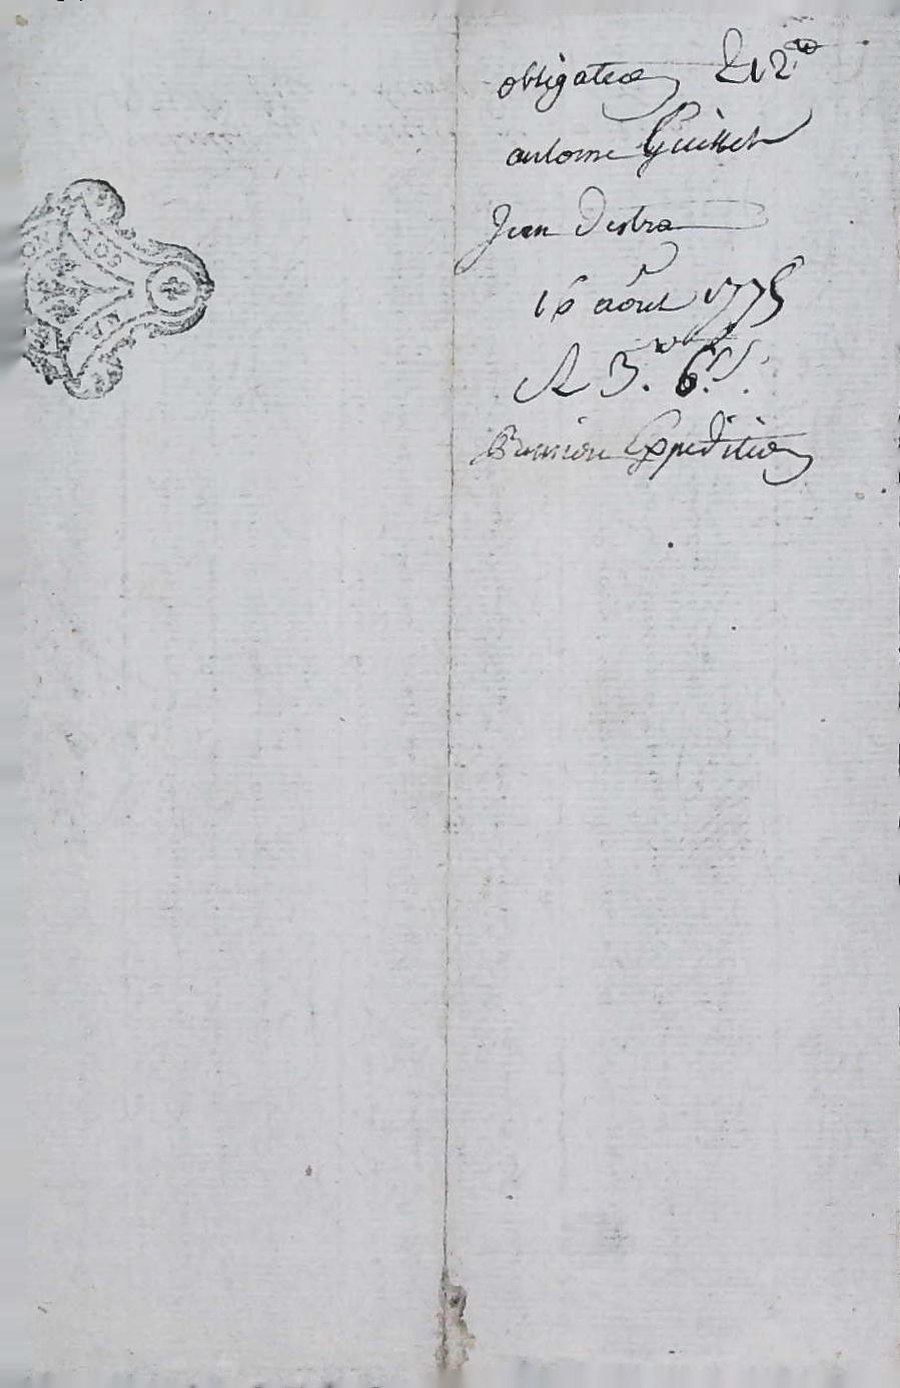 obligation De 12tt
antoine Guisset
Jean Destra
16 aout 1775
R 3tt 6s
Premiere Expedition